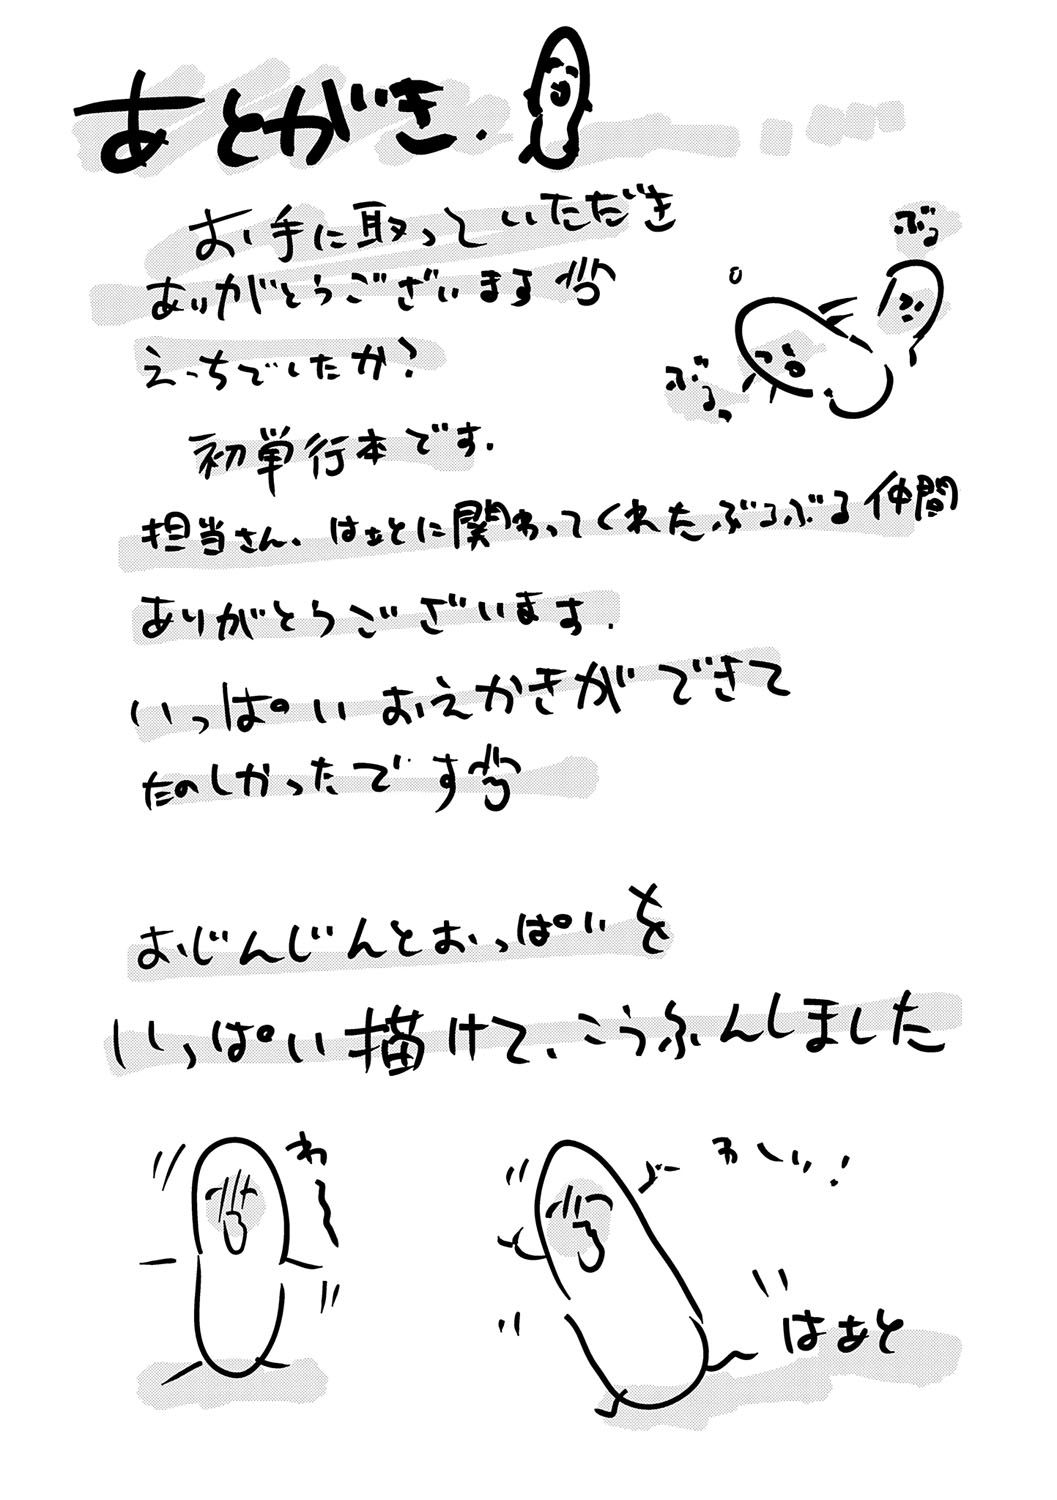 あとがき.
お手に取っていただき
ありがとうございます
えっちでしたか?
ぶる
ぶるっ
初単行本です.
担当さん、はぁとに関わってくれたぶるぶる仲間
ありがとうございます.
いっぱいおえかきができて
たのしかったです
おじんじんとおっぱいを
いっぱい描けて、こうふんしました
わ〜
わーい!
はぁと